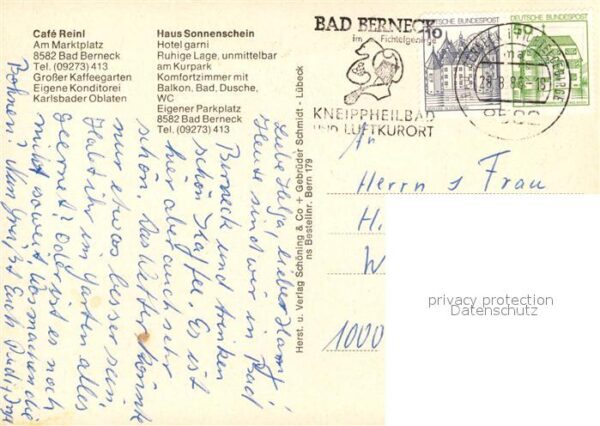 Café Reinl
Am Marktplatz
8582 Bad Berneck
Tel. (09273) 413
Großer Kaffeegarten
Eigene Konditorei
Karlsbader Oblaten
Haus Sonnenschein
Hotel garni
Ruhige Lage, unmittelbar
am Kurpark
Komfortzimmer mit
Balkon, Bad, Dusche,
WC
Eigener Parkplatz
8582 Bad Berneck
Tel. (09273) 413
BAD BERNECK
im Fichtelgebirge
KNEIPPHEILBAD
UND LUFTKURORT
10 DEUTSCHE BUNDESPOST
50 DEUTSCHE BUNDESPOST
Herst. u. Verlag Schöning & Co + Gebrüder Schmidt - Lübeck
ns Bestellnr. Bern 179
Liebe Helga, lieber
Heute sind wir in Bad
Berneck und trinken
schön Kaffee. Es ist
hier aber auch sehr
schön. Das Wetter könnte
nur etwas besser sein.
Habt ihr im Garten alles
geerntet? Oder ist es noch
nicht soweit. Was machen die
Bohnen? Nun grüßt Euch
An
Herrn u Frau
H.
W
1000
privacy protection
Datenschutz